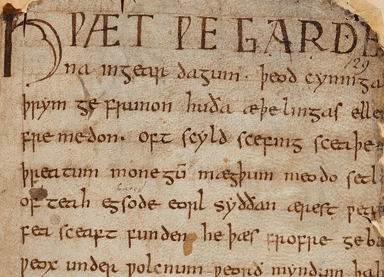 HǷÆT ǷE GARDE
na ingear dagum. þeod cyninga
þrym ge frunon huða æþelingas elle
fre medon. oft scyld scefing sceaþe
þreatum monegū mægþum meodo setl
of teah egsode eorl syððan ærest ƿe
fea sceaft funden he þæs frofre geba
ƿeox under ƿolcnum ƿeorð myndum